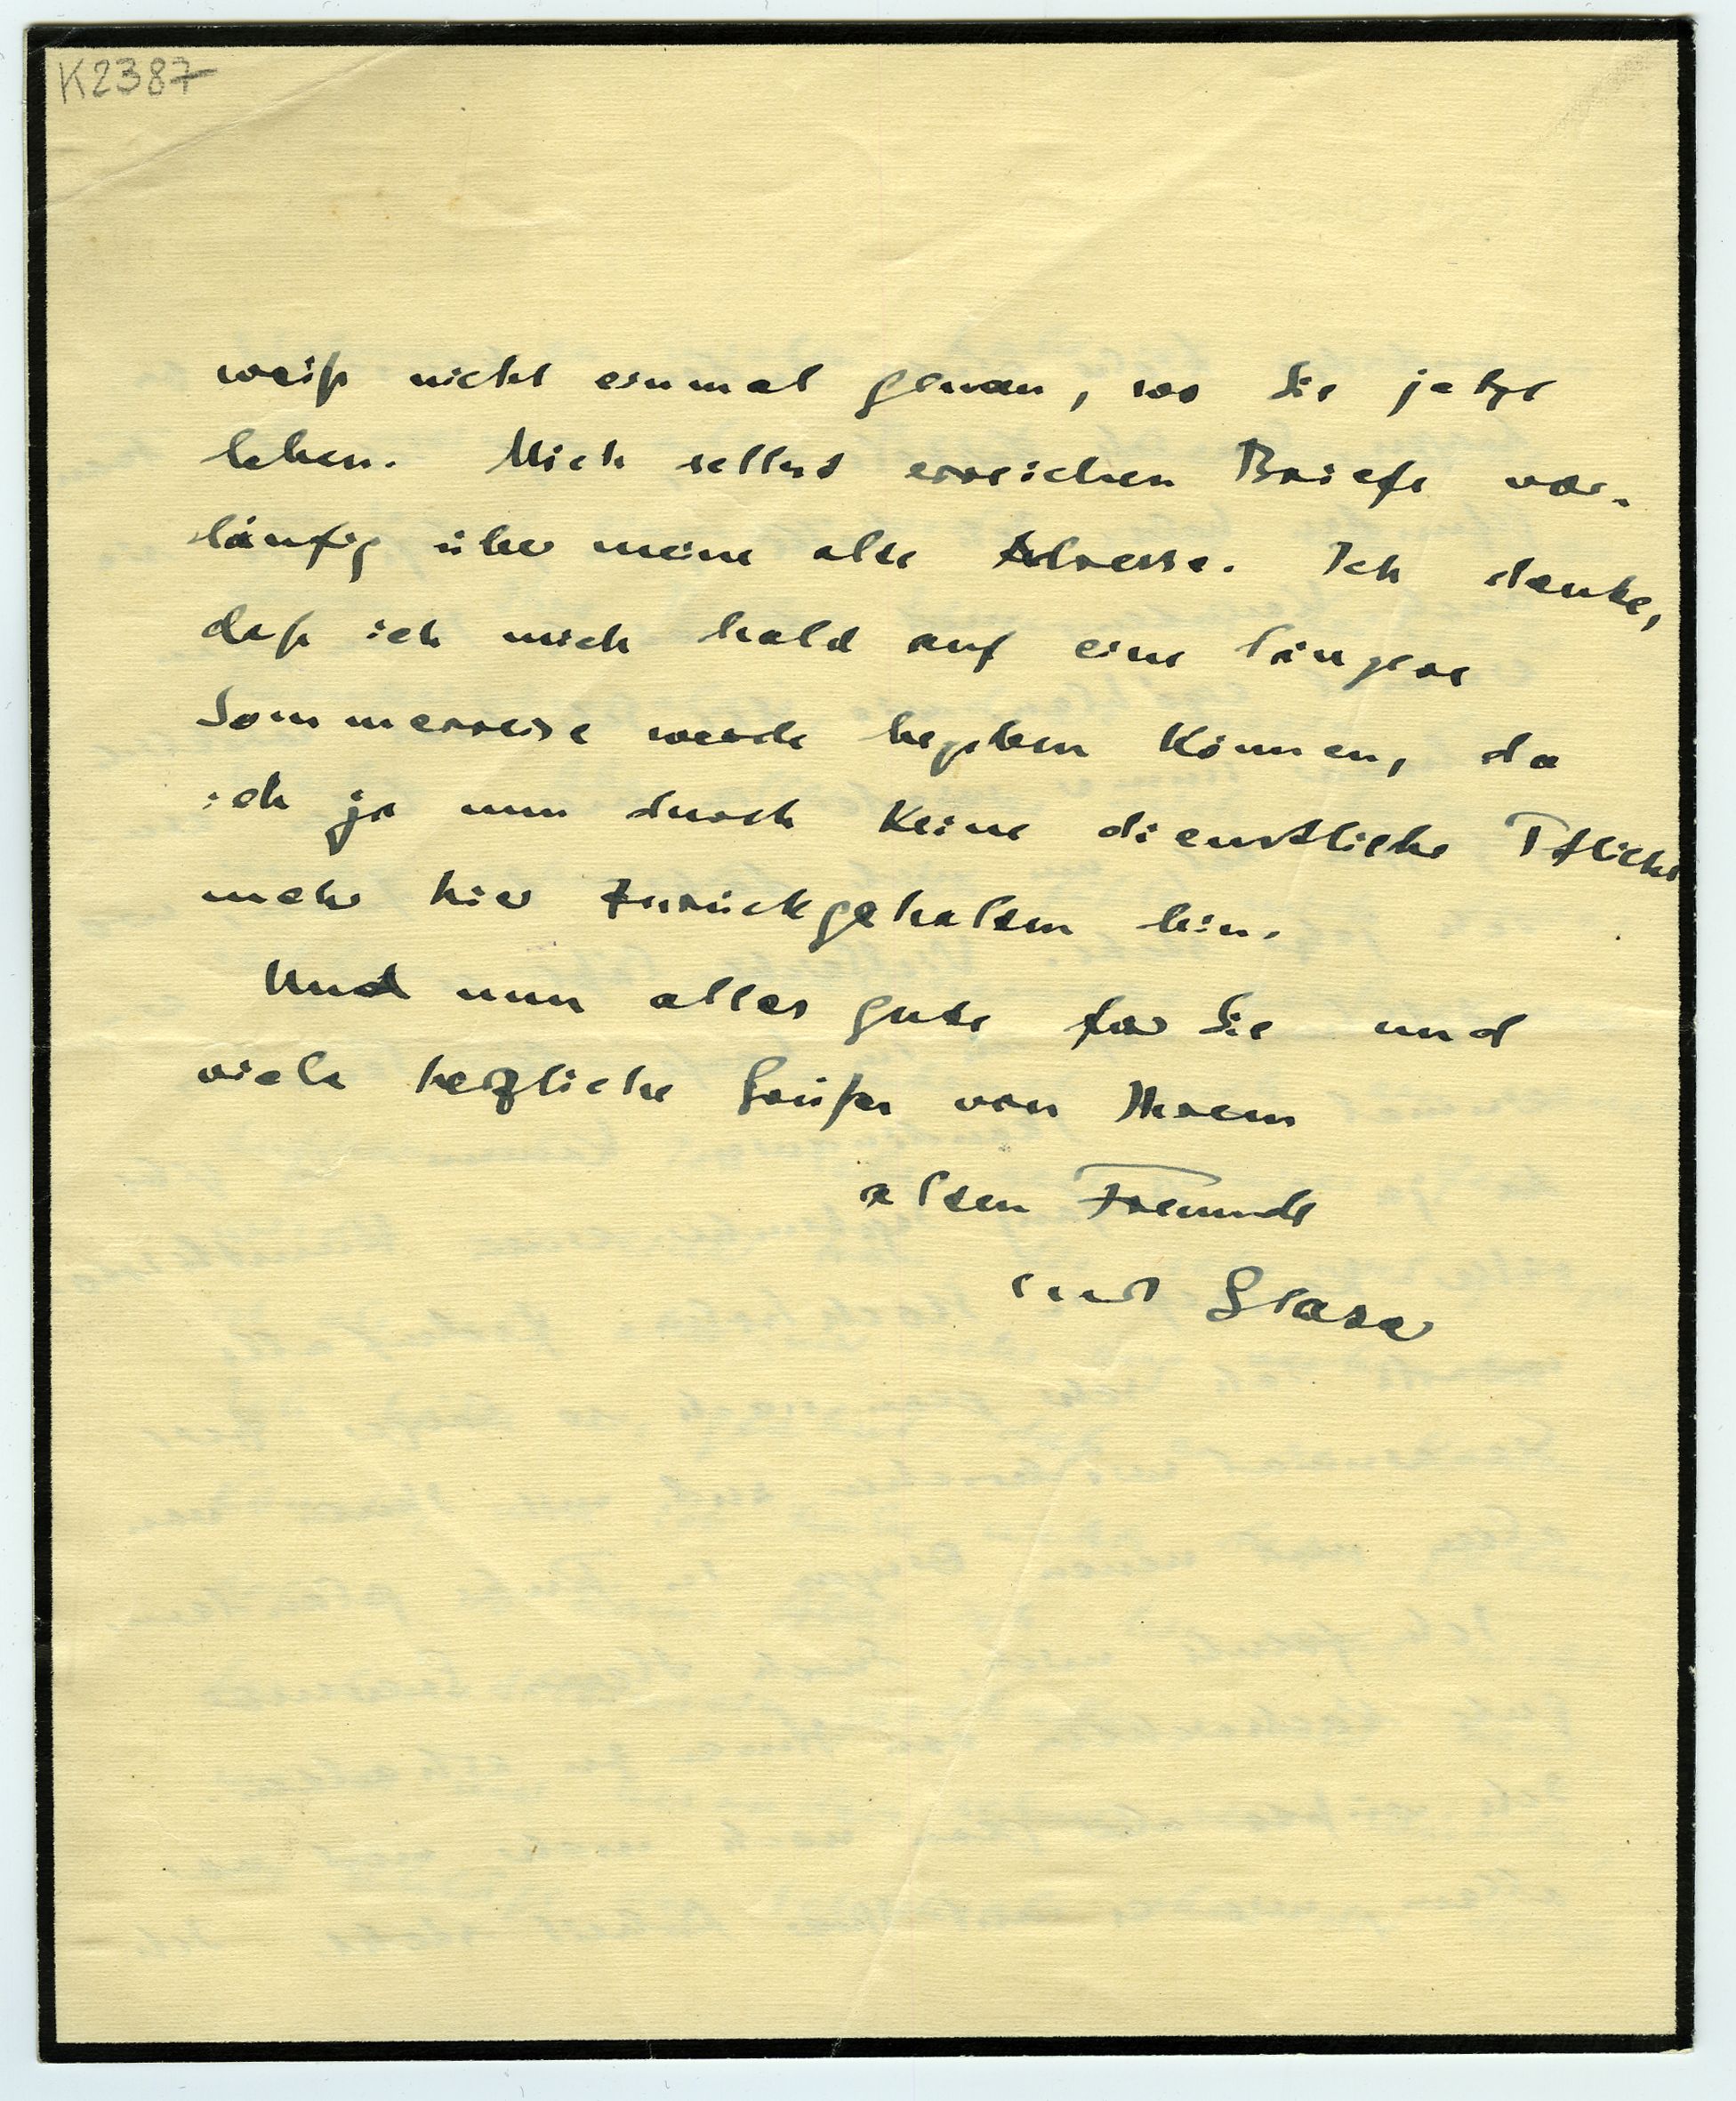 K2387
weiß nicht einmal genau, wo Sie jetzt
leben. Mich selbst erreichen Briefe vor-
läufig über meine alte Adresse. Ich denke,
daß ich mich bald auf eine längere
Sommerreise werde begeben können, da
ich ja nun durch keine dienstliche Pflicht
mehr hier zurückgehalten bin.
Und nun alles gute für Sie und
viele herzliche Grüße von Ihrem
alten Freunde
Curt Glaser